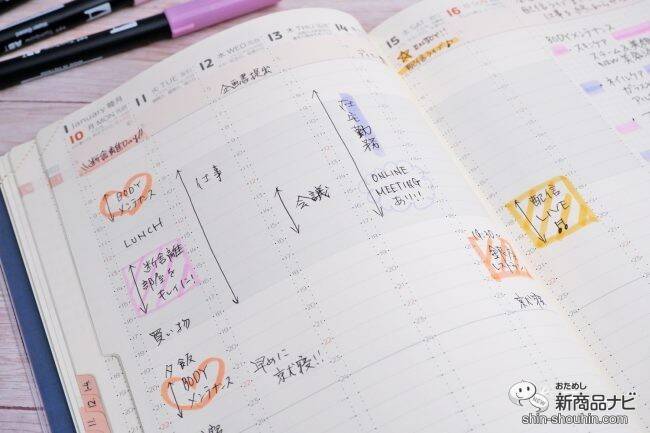 1 January 睦月
10 月 MON
11 火 TUE
12 水 WED
13 木 THU
14
15 土 SAT
16
断舎離Day!!
BODY
メンテナンス
LUNCH
断舎離
部屋を
キレイに!
買い物
夕飯
BODY
メンテナンス
仕事
早めに
就寝!!
企画書提出
会議
在宅勤務
ONLINE
MEETING
あり!!
配信
LIVE
BODYメンテナンス
ネイルケア
就寝
11
12
おためし
新商品ナビ
shin-shouhin.com